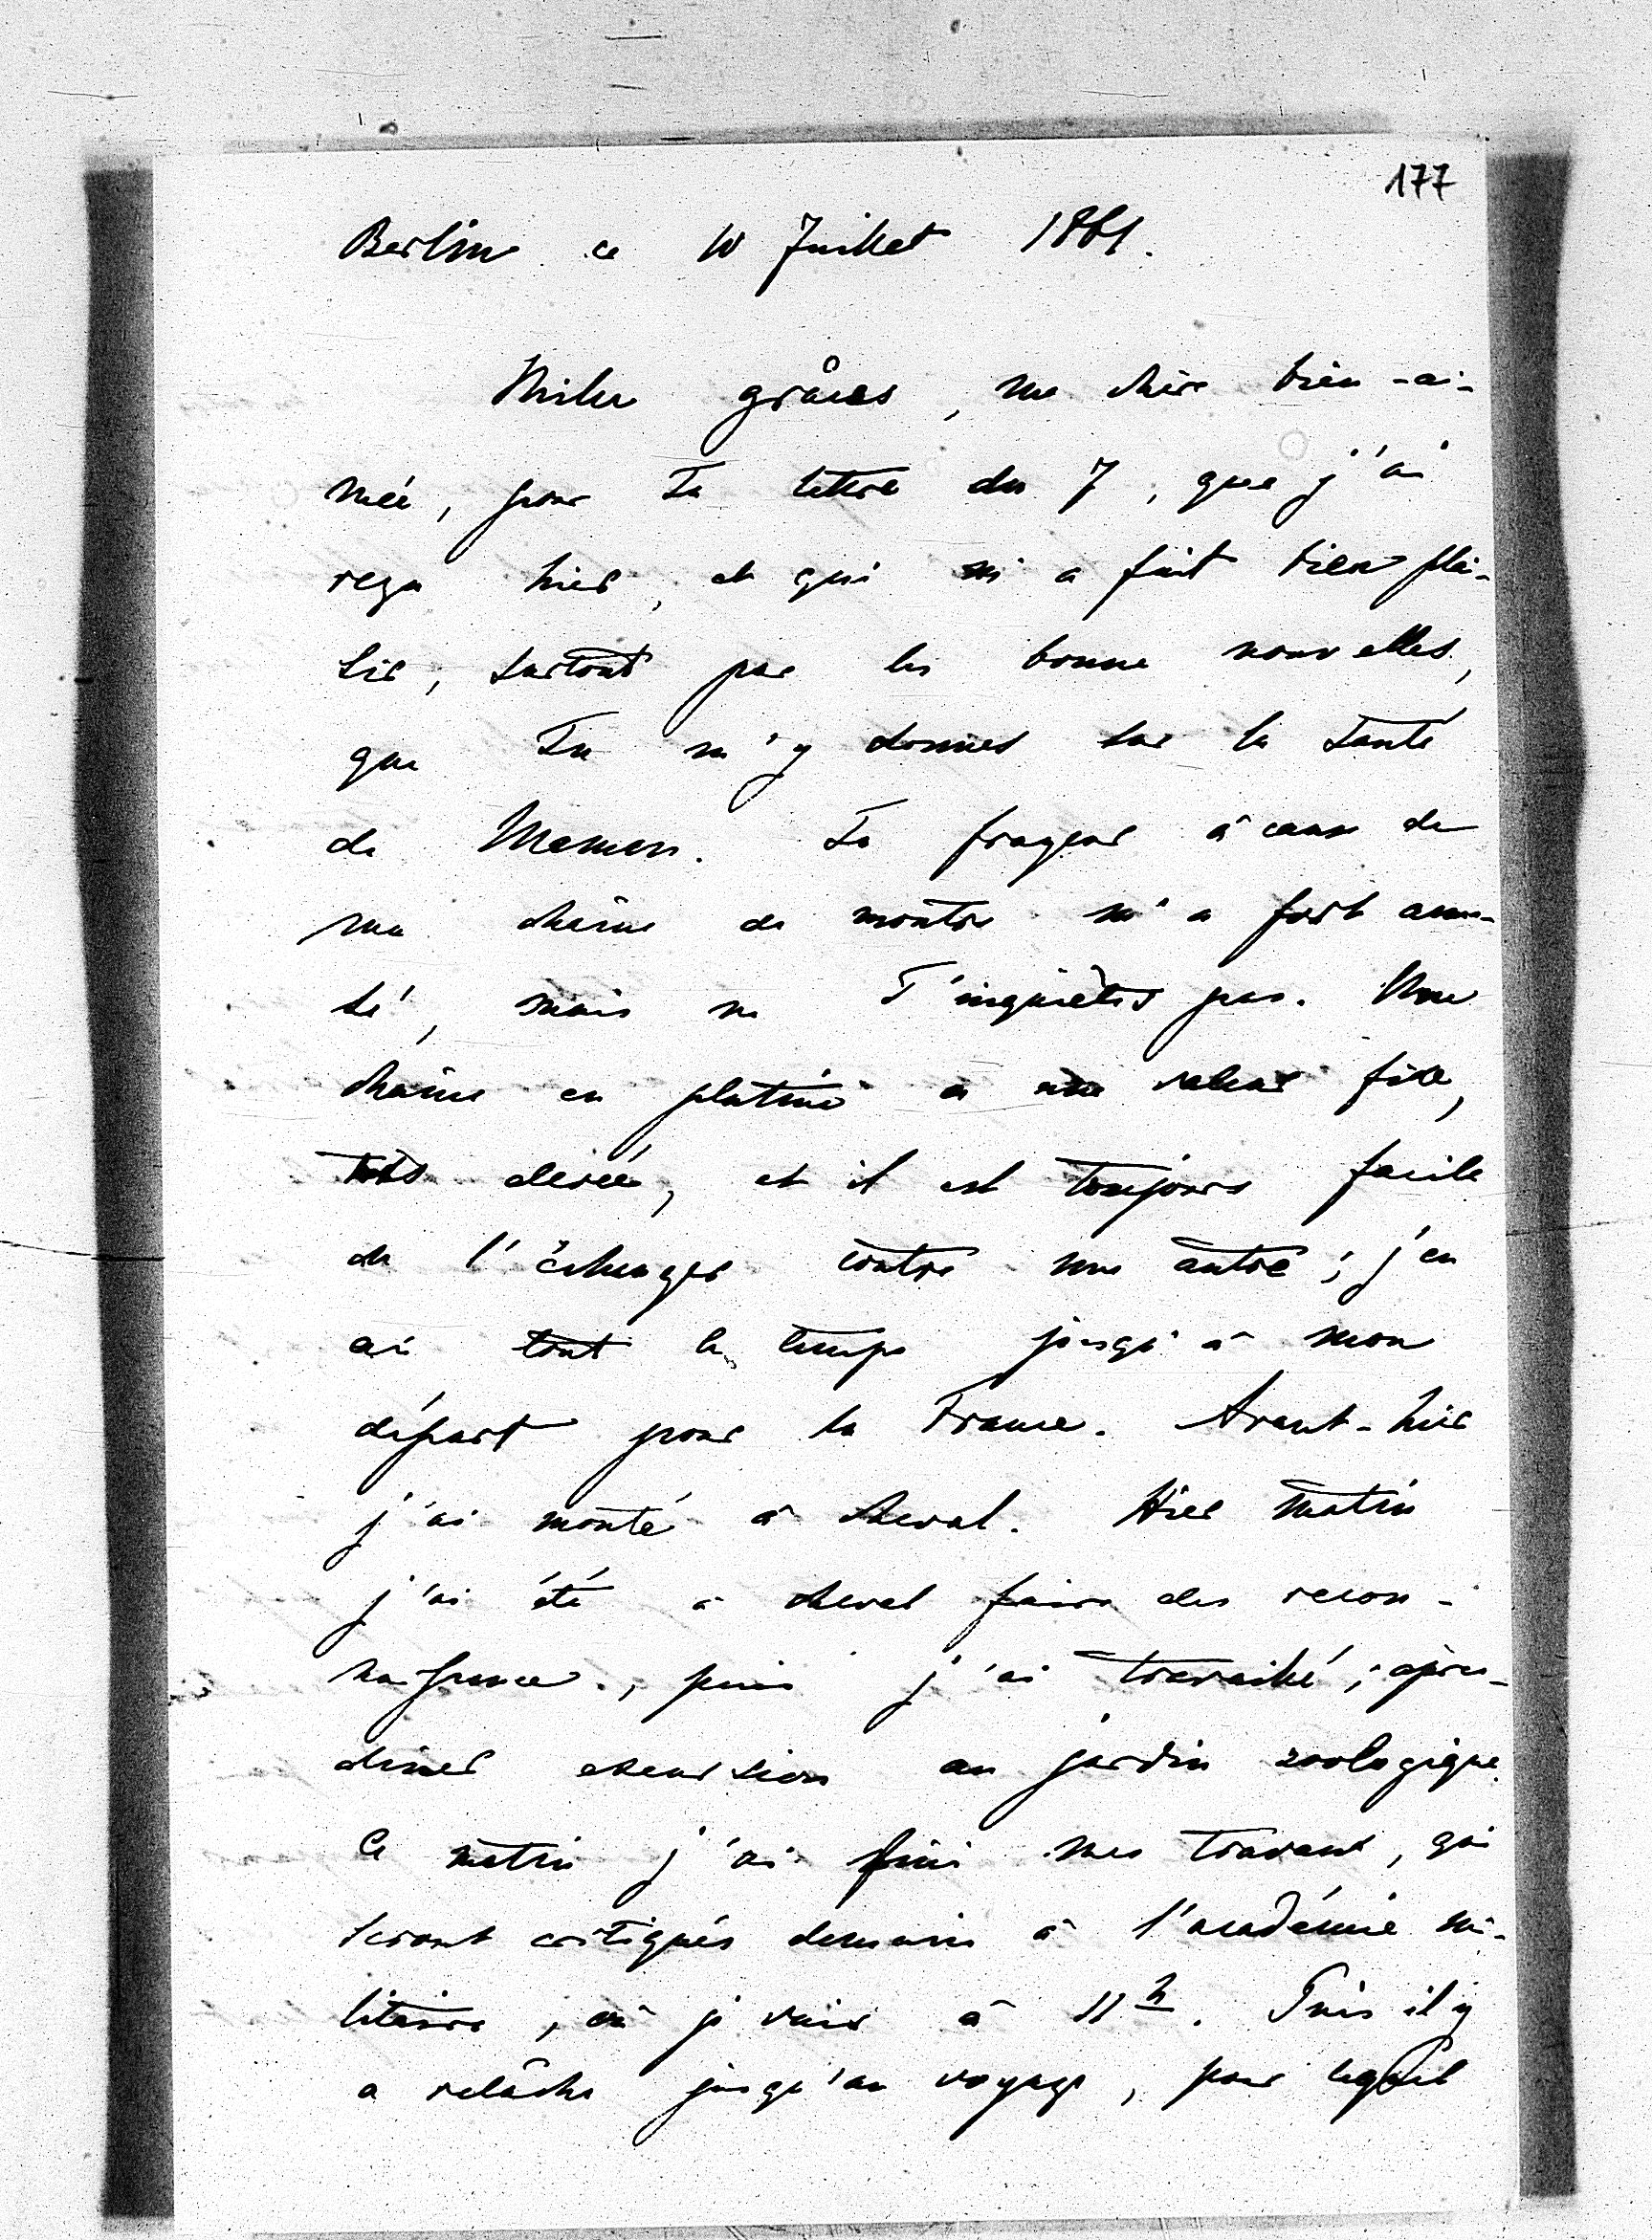 177
Berlin ce 10 Juillet 1861.
Milles grâces, ma chère bien-ai-
mée, pour Ta lettre du 7, que j'ai
reçu hier, et qui m'a fait bien plai-
sir, surtout par les bonne nouvelles,
que Tu m'y donnes sur la santé
de Maman. Ta frayeur à cause de
ma chaîne de montre m'a fort amu-
sé, mais ne T'inquiètes pas. Une
chaîne en platine a une valeur fixe,
très élevée, et il est toujours facile
de l'échanger contre une autre; j'en
ai tout le temps jusqu'à mon
départ pour la France. Avant-hier
j'ai monté à cheval. Hier matin
j'ai été à cheval faire des recon-
naissance, puis j'ai travaillé; après-
diner excursion au jardin zoologique.
Ce matin j'ai fini mes travaux, qui
seront critiqués demain à l'académie mi-
litaire, où je vais à 11h. Puis il y
a relâche jusqu'au voyage, pour lequel